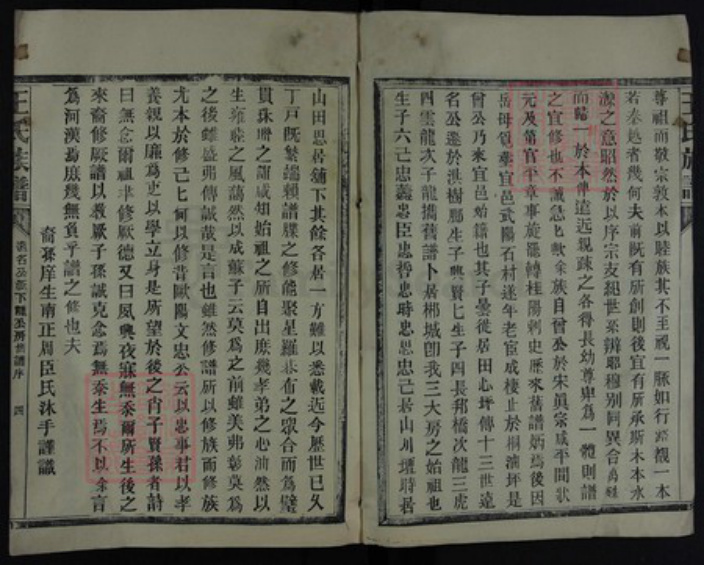 尊祖而敬宗敦本以睦族其不至視一脉如行路視一本
若秦越者幾何夫前既有所創則後宜有所承斯木本水
源之意昭然於以序宗支紀世系辨昭穆别同異合
而歸一於本俾遠近親疎之各得長幼尊卑為一體則譜
之宜修也不誠急乎余族自曾公於宋真宗咸平間狀
元及第官平章事旋擢轉桂陽刺史歷來舊譜炳焉後因
岳母管華宜邑武陽石村遂年老宦成棲止於桐浦坪是
曾公乃來宜邑始籍也其子曇徙居田心坪傳十三世遠
名公遷於洪樹鄜生子興賢七生子四長邦橋次龍三虎
四雲龍次子龍攜舊譜卜居郴城即我三大房之始祖也
生子六己忠義忠臣忠哲忠時忠思忠己居山川壇時居
山田思居鋪下其餘各居一方難以悉載迄今歷世已久
丁戸既繁端賴譜牒之修能聚星羅碁布之眾合而為璧
貫珠聯之謝咸知始祖之所自出庶幾孝弟之心油然以
生雍睦之風藹然以成蘇子云莫為之前雖美弗彰莫為
之後雖盛弗傳誠哉是言也雖然修譜所以修族而修族
尤本於修己何以修昔歐陽文忠公云以忠事君以孝
養親以廉為吏以學立身是所望於後之肖子賢孫者詩
曰無念爾祖聿修厥德又曰夙興夜寐無忝爾所生後之
來裔修厥譜以教厥子孫誠克念焉無忝生焉不以余言
為河漢焉庶幾無負乎譜之修也夫
裔孫庠生南正周臣氏沐手謹識
王氏族譜
四
王氏族譜